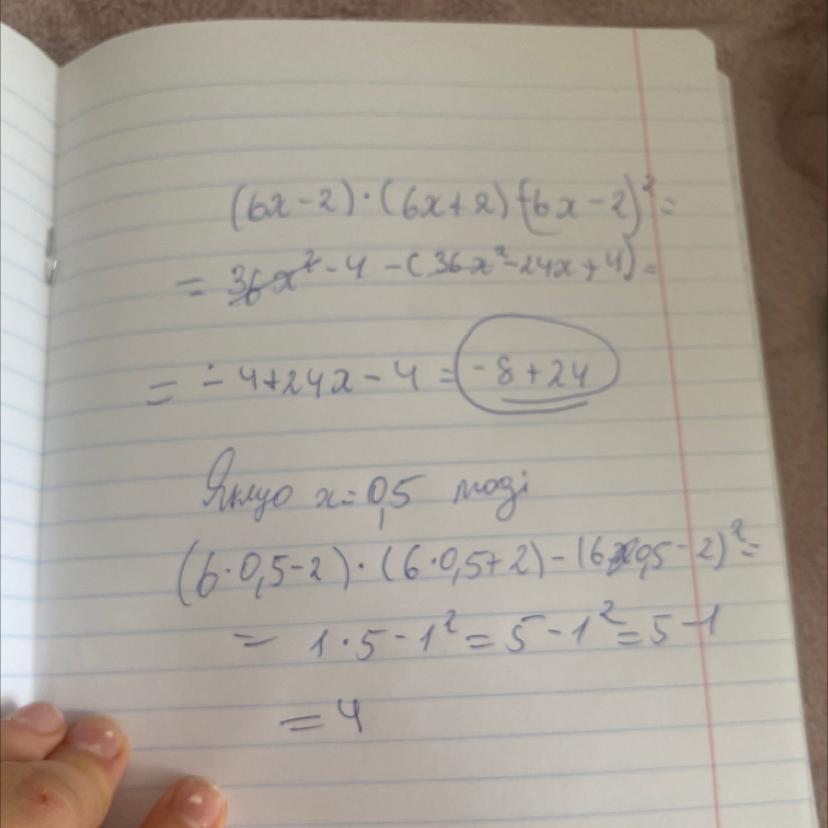 (6x-2)·(6x+2)-(6x-2)²=
= 36x²-4-(36x²-24x+4)=
= -4+24x-4=-8+24
Якщо x=0,5 тоді
(6·0,5-2)·(6·0,5+2)-(6·0,5-2)²=
= 1·5-1²=5-1²=5-1
=4